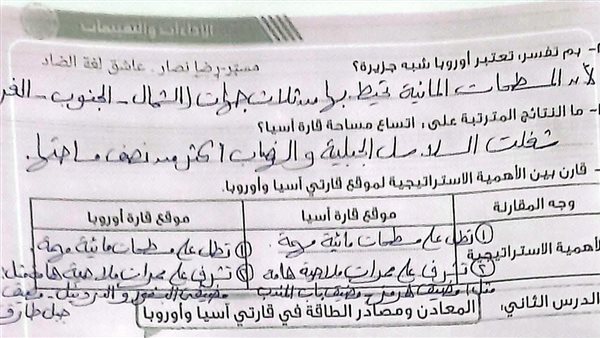 الأداءات والتقييمات
- بم تفسر، تعتبر أوروبا شبه جزيرة؟
مستر رضا نصار عاشق لغة الضاد
لأن المسطحات المائية تحيط بها من ثلاث جهات (الشمال - الجنوب - الغر
- ما النتائج المترتبة على: اتساع مساحة قارة آسيا؟
شغلت السلاسل الجبلية والهضاب أكثر من نصف مساحتها.
- قارن بين الأهمية الاستراتيجية لموقع قارتي آسيا وأوروبا.
وجه المقارنة موقع قارة آسيا موقع قارة أوروبا
الأهمية الاستراتيجية ① تطل على مسطحات مائية مهمة. ① تطل على مسطحات مائية مهمة.
② تشرف على ممرات ملاحية هامة ② تشرف على ممرات ملاحية هامة مثل:
مثل: مضيق هرمز ومضيق باب المندب مضيقي البسفور والدردنيل - ومضيق
جبل طارق
الدرس الثاني: المعادن ومصادر الطاقة في قارتي آسيا وأوروبا